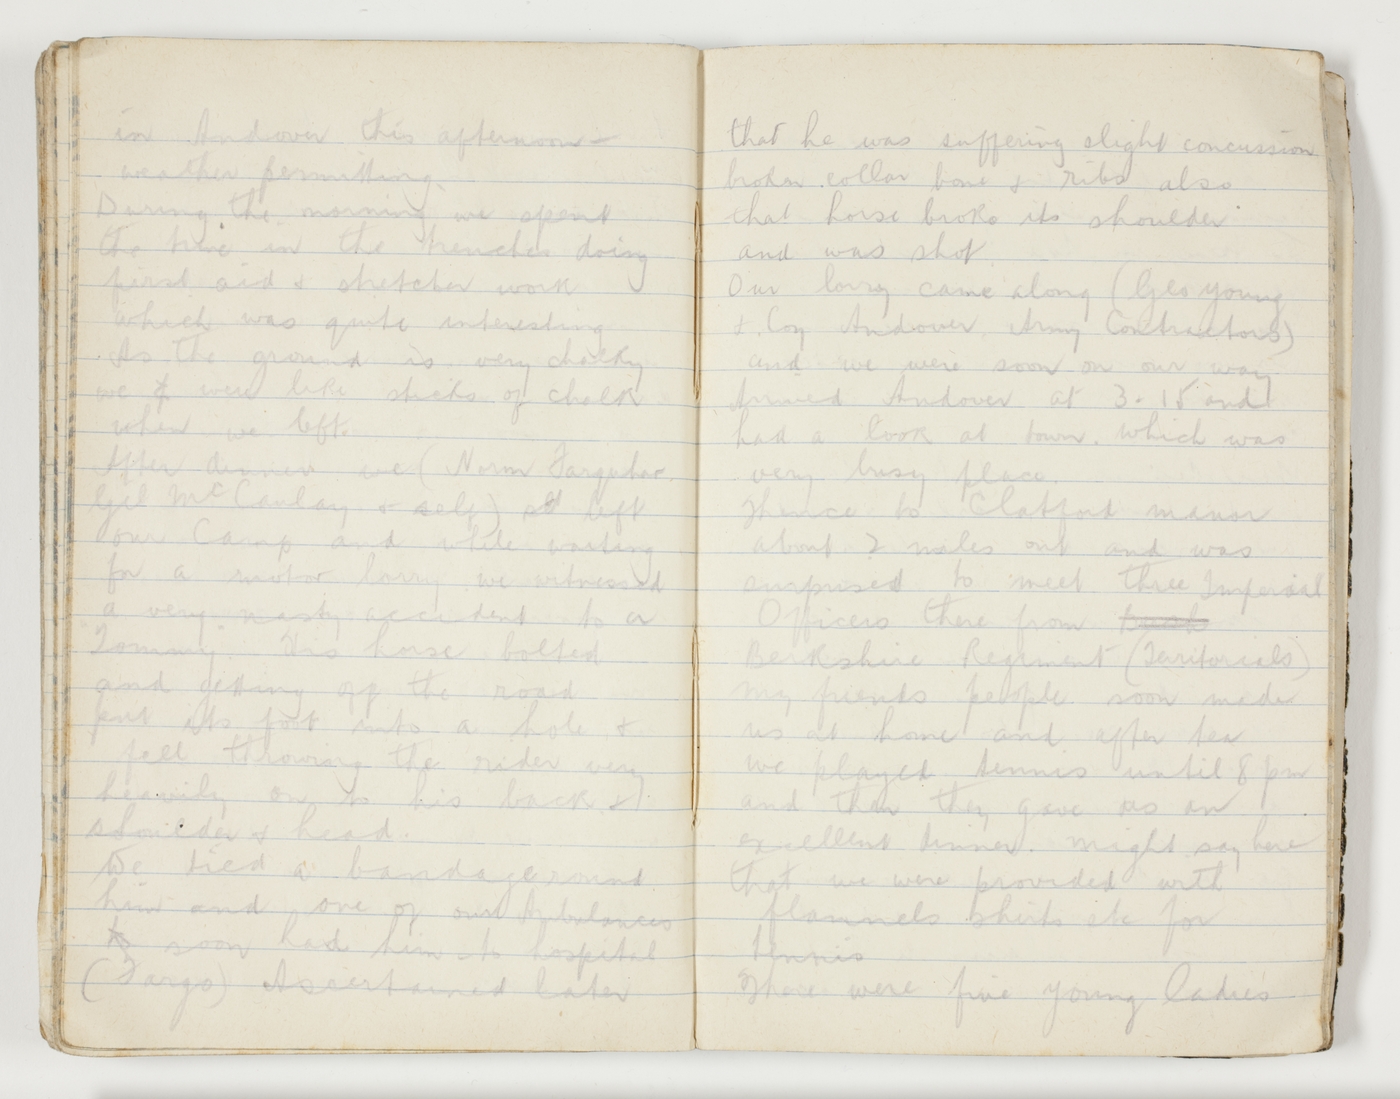 in Andover this afternoon -
weather permitting.
During the morning we spent
the time in the trenches doing
first aid & stretcher work
which was quite interesting
As the ground is very chalky
we were like sticks of chalk
when we left.
After dinner we (Norm Farquhar
Gil McCaulay & self) left
our Camp and while waiting
for a motor lorry we witnessed
a very nasty accident to a
Tommy. His horse bolted
and getting off the road
put its foot into a hole &
fell throwing the rider very
heavily on to his back &
shoulder & head.
We tied a bandage round
him and one of our Ambulances
soon had him to hospital
(Fargo) Ascertained later
that he was suffering slight concussion
broken collar bone & ribs also
that horse broke its shoulder
and was shot.
Our lorry came along (Geo Young
& Coy Andover Army Contractors)
and we were soon on our way
Arrived Andover at 3.15 and
had a look at town. which was
very busy place.
Thence to Clatford manor
about 2 miles out and was
surprised to meet three Imperial
Officers there from
Berkshire Regiment (Territorials)
My friends people soon made
us at home and after tea
we played tennis until 8 pm
and then they gave us an
excellent dinner. Might say here
that we were provided with
flannels shirts etc for
tennis
There were five young ladies